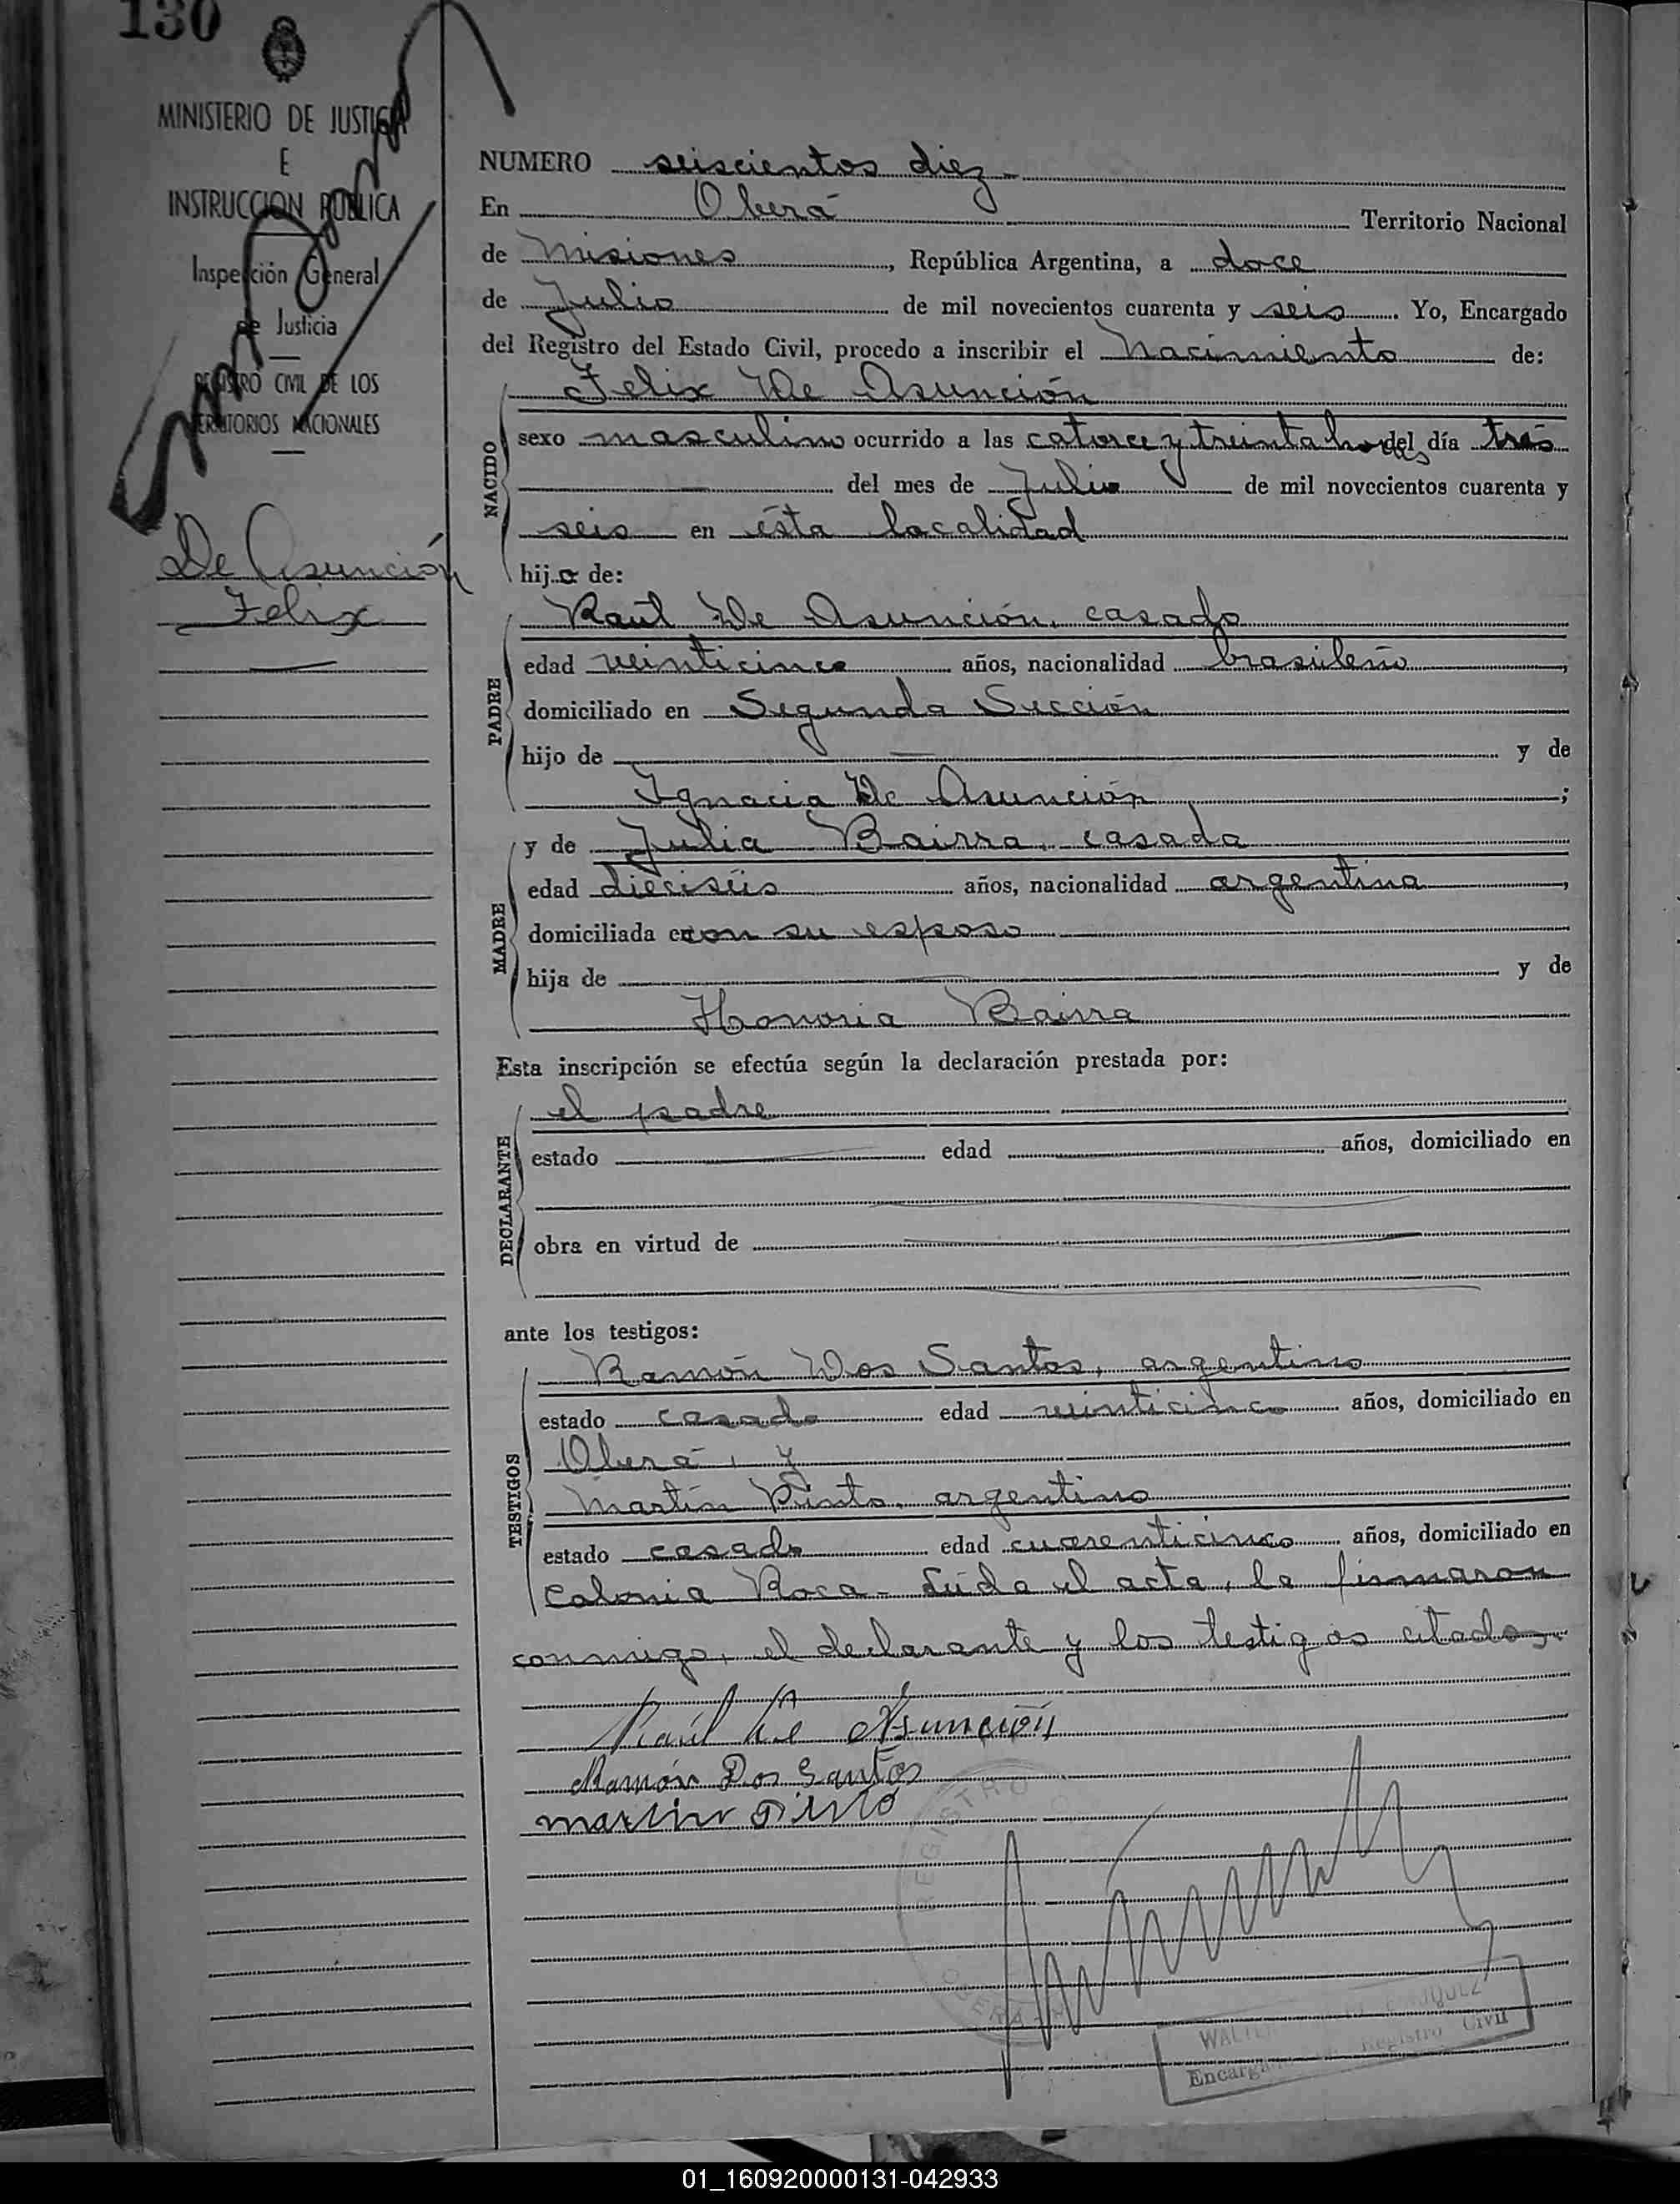 130
MINISTERIO DE JUSTICIA
E
INSTRUCCION PUBLICA
Inspección General
de Justicia
REGISTRO CIVIL DE LOS
TERRITORIOS NACIONALES
De Asunción
Felix
NUMERO seiscientos diez
En Oberá Territorio Nacional
de Misiones, República Argentina, a doce
de Julio de mil novecientos cuarenta y seis. Yo, Encargado
del Registro del Estado Civil, procedo a inscribir el Nacimiento de:
Felix De Asunción
NACIDO
sexo masculino ocurrido a las catorce y treinta horas del día tres
del mes de Julio de mil novecientos cuarenta y
seis en ésta localidad
hijo de:
Raúl De Asunción, casado
PADRE
edad veinticinco años, nacionalidad brasileño,
domiciliado en Segunda Sección
hijo de y de
Ignacia De Asunción;
y de Julia Bairra, casada
MADRE
edad dieciséis años, nacionalidad argentina,
domiciliada en con su esposo
hija de y de
Honoria Bairra
Esta inscripción se efectúa según la declaración prestada por:
el padre
DECLARANTE
estado edad años, domiciliado en
obra en virtud de
ante los testigos:
Ramón Dos Santos, argentino
TESTIGOS
estado casado edad veinticinco años, domiciliado en
Oberá, y
Martín Pinto, argentino
estado casado edad cuarenticinco años, domiciliado en
Colonia Roca - Leída el acta, la firmaron
conmigo, el declarante y los testigos citados.
Raúl de Asunción
Ramón Dos Santos
martin Pinto
REGISTRO
OBERA
Encargado Registro Civil
01_160920000131-042933